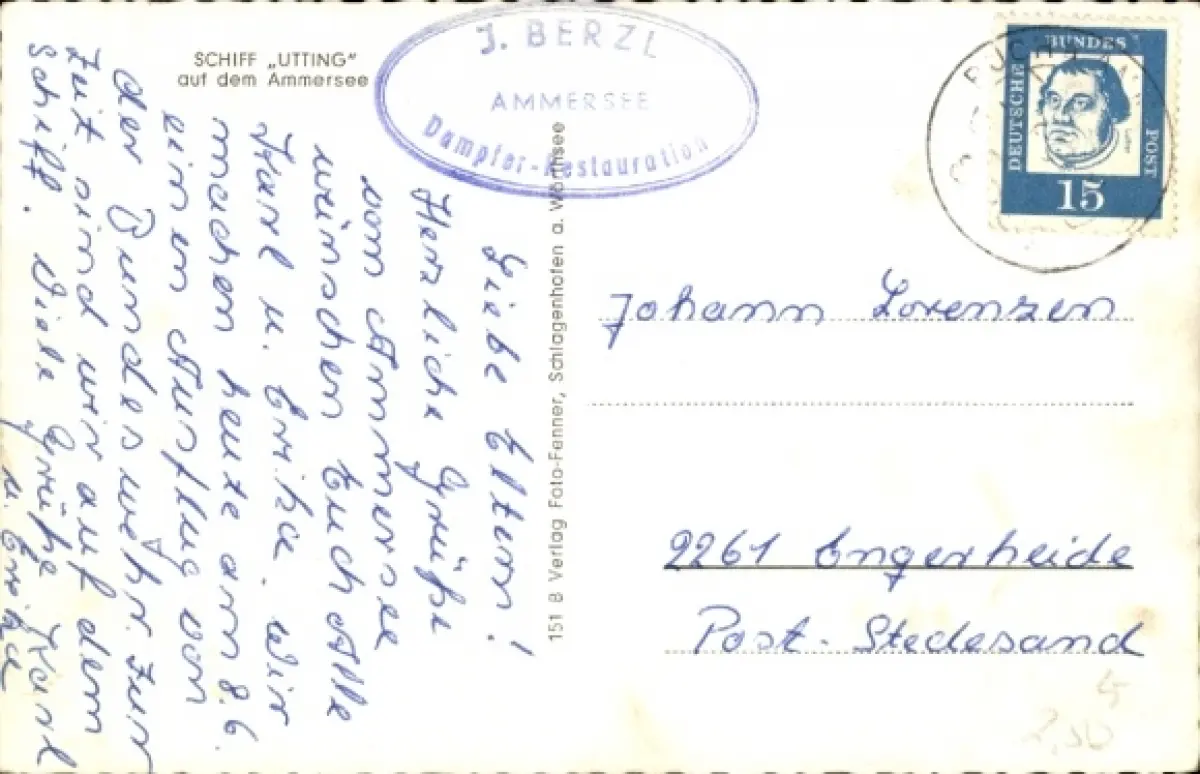 SCHIFF „UTTING"
auf dem Ammersee
J. BERZL
AMMERSEE
Dampfer-Restauration
Liebe Eltern!
Herzliche Grüße
vom Ammersee
wünschen Euch Alle
Karl u. Erika. Wir
machen heute am 8.6.
einen Ausflug von
der Bundeswehr. Zur
Zeit sind wir auf dem
Schiff. Viele Grüße Karl
u. Erika
151 B Verlag Foto-Fenner, Schlagenhofen a. Wörthsee
DEUTSCHE
BUNDES
POST
15
Johann Lorenzen
2261 Engerheide
Post-Stedesand
2,50